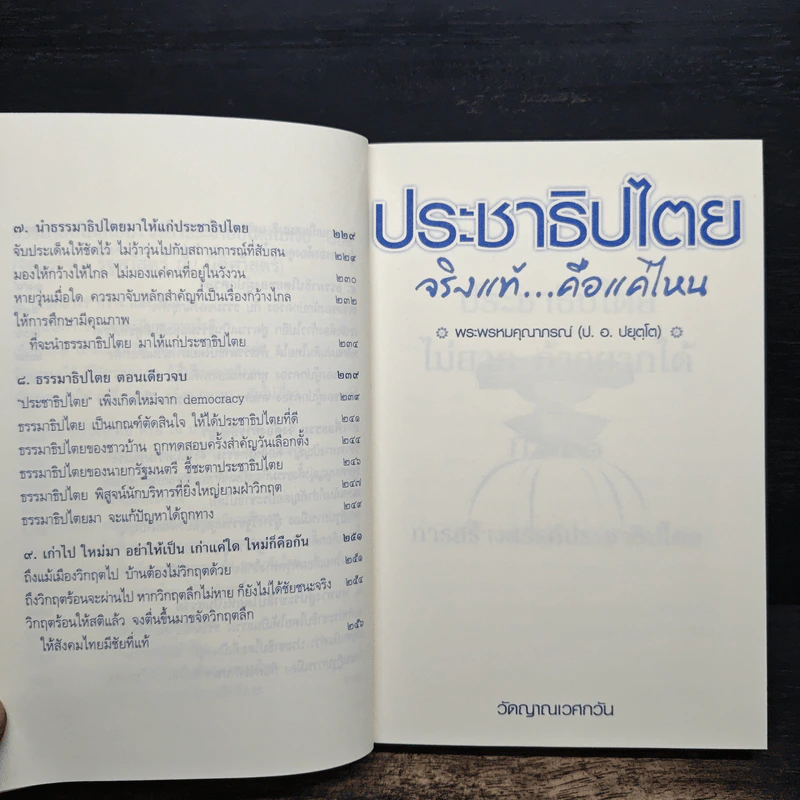 ๗. นำธรรมาธิปไตยมาให้แก่ประชาธิปไตย ๒๒๙
จับประเด็นให้ชัดไว้ ไม่ว้าวุ่นไปกับสถานการณ์ที่สับสน ๒๒๙
มองให้กว้างให้ไกล ไม่มองแค่คนที่อยู่ในวังวน ๒๓๐
หายวุ่นเมื่อใด ควรมาจับหลักสำคัญที่เป็นเรื่องกว้างไกล ๒๓๒
ให้การศึกษามีคุณภาพ
ที่จะนำธรรมาธิปไตย มาให้แก่ประชาธิปไตย ๒๓๔
๘. ธรรมาธิปไตย ตอนเดียวจบ ๒๓๙
"ประชาธิปไตย" เพิ่งเกิดใหม่จาก democracy ๒๓๙
ธรรมาธิปไตย เป็นเกณฑ์ตัดสินใจ ให้ได้ประชาธิปไตยที่ดี ๒๔๑
ธรรมาธิปไตยของชาวบ้าน ถูกทดสอบครั้งสำคัญวันเลือกตั้ง ๒๔๔
ธรรมาธิปไตยของนายกรัฐมนตรี ชี้ชะตาประชาธิปไตย ๒๔๖
ธรรมาธิปไตย พิสูจน์นักบริหารที่ยิ่งใหญ่ยามฝ่าวิกฤต ๒๔๗
ธรรมาธิปไตยมา จะแก้ปัญหาได้ถูกทาง ๒๔๙
๙. เก่าไป ใหม่มา อย่าให้เป็น เก่าแค่ใด ใหม่ก็คือกัน ๒๕๑
ถึงแม้เมืองวิกฤตไป บ้านต้องไม่วิกฤตด้วย ๒๕๑
ถึงวิกฤตร้อนจะผ่านไป หากวิกฤตลึกไม่หาย ก็ยังไม่ได้ชัยชนะจริง ๒๕๔
วิกฤตร้อนให้สติแล้ว จงตื่นขึ้นมาขจัดวิกฤตลึก
ให้สังคมไทยมีชัยที่แท้ ๒๕๖
ประชาธิปไตย
จริงแท้...คือแค่ไหน
พระพรหมคุณาภรณ์ (ป. อ. ปยุตฺโต)
วัดญาณเวศกวัน